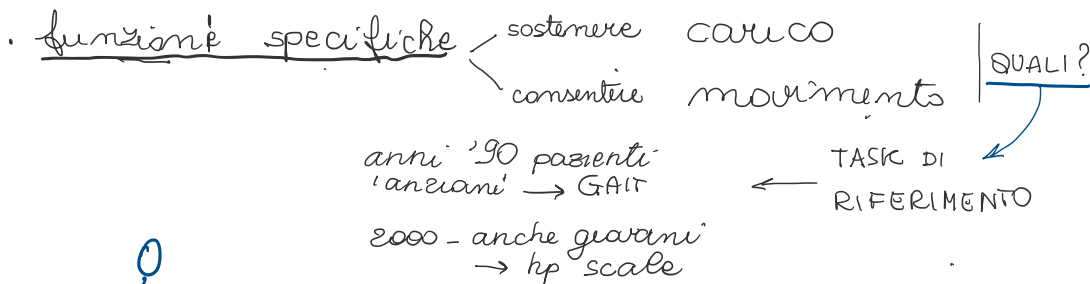 . funzioni specifiche sostenere carico
consentire movimento
QUALI?
TASK DI
RIFERIMENTO
anni '90 pazienti
anziani → GAIT
2000 - anche giovani
→ hp scale